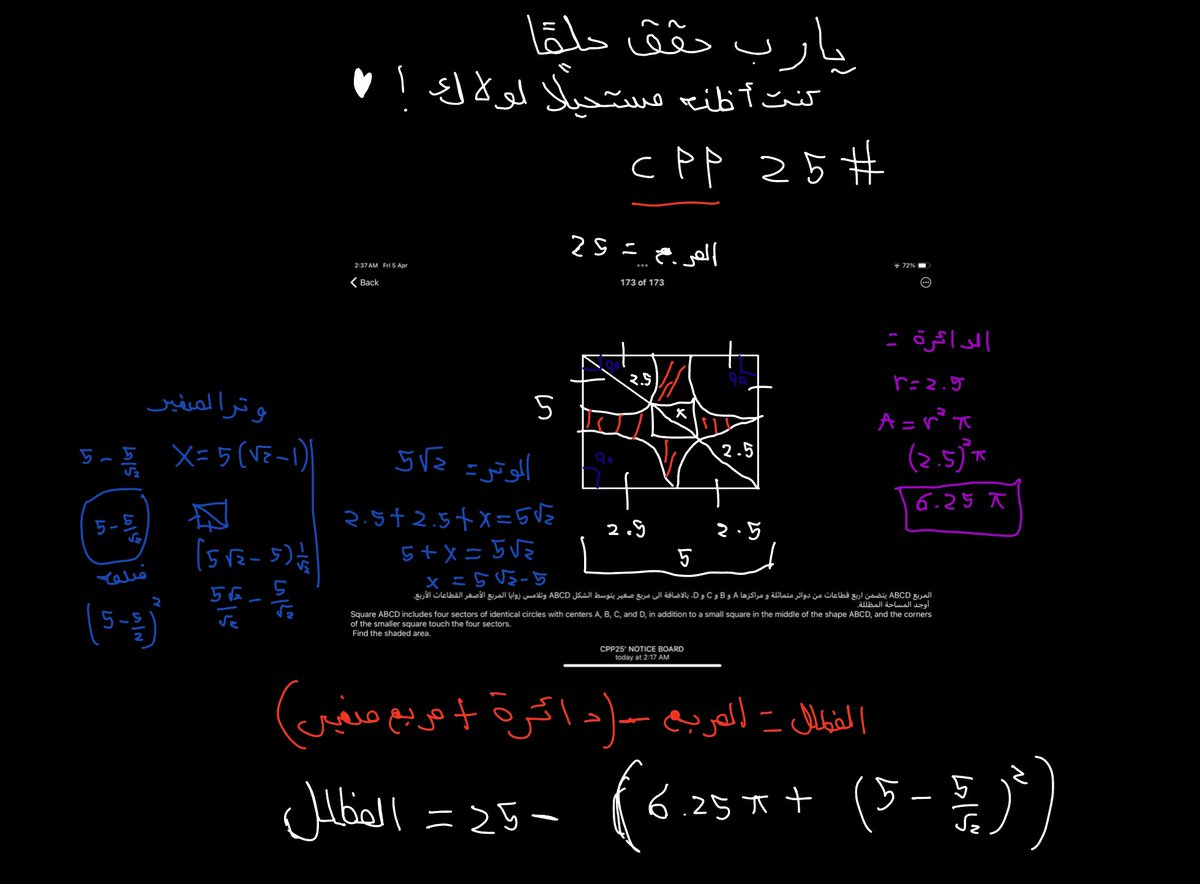 يارب حقق حلمًا
كنت أظنه مستحيلًا لولاك !
CPP 25#
المربع = 25
2:37 AM Fri 5 Apr
72%
Back
173 of 173
الدائرة =
r=2.5
A = r² π
(2.5)² π
6.25 π
90
2.5
90
x
5
90
2.5
2.5
2.5
5
وتر الصغير
5 - 5/√2
X = 5(√2-1)
5 - 5/√2
(5√2 - 5) 1/√2
5√2/√2 - 5/√2
(5 - 5/2)²
الوتر = 5√2
2.5+2.5+x=5√2
5+x=5√2
x = 5√2-5
المربع ABCD يتضمن اربع قطاعات من دوائر متماثلة و مراكزها A و B و C و D، بالاضافة الى مربع صغير يتوسط الشكل ABCD وتلامس زوايا المربع الأصغر القطاعات الأربع.
أوجد المساحة المظللة.
Square ABCD includes four sectors of identical circles with centers A, B, C, and D, in addition to a small square in the middle of the shape ABCD, and the corners
of the smaller square touch the four sectors.
Find the shaded area.
CPP25' NOTICE BOARD
today at 2:17 AM
المظلل = المربع - (دائرة + مربع صغير)
المظلل = 25 - (6.25π + (5 - 5/√2)²)